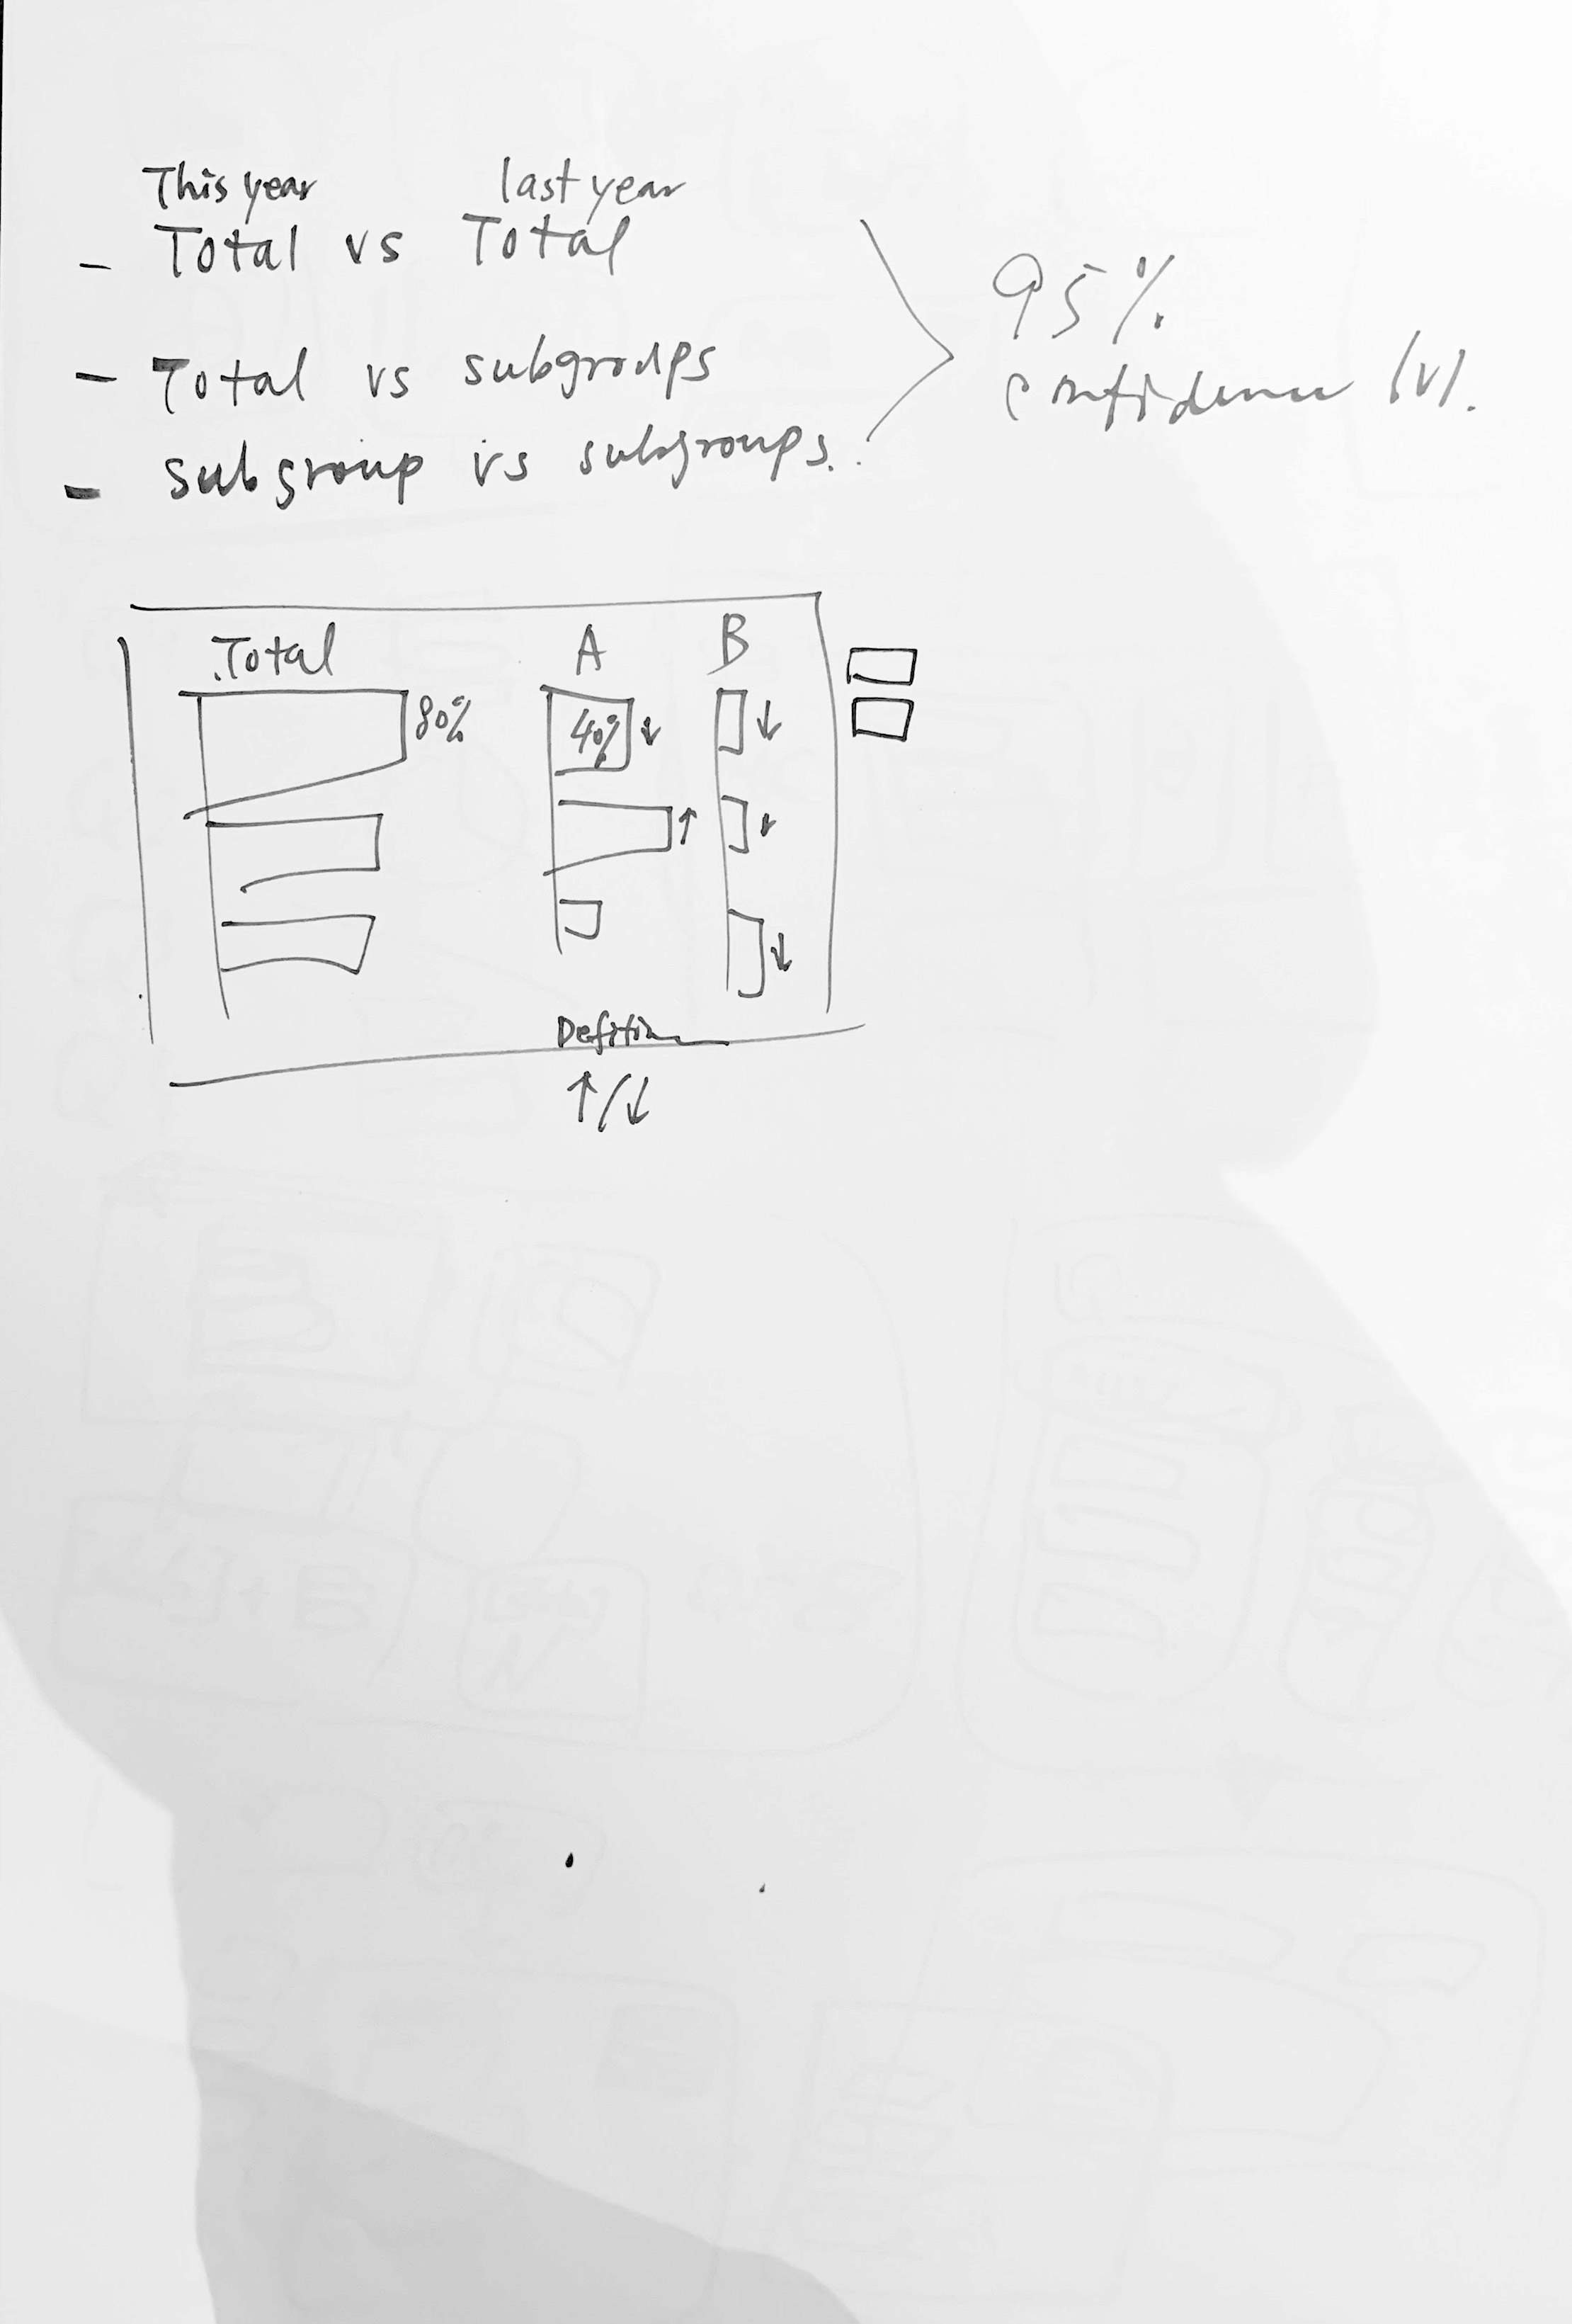 This year last year
- Total vs Total
- Total vs subgroups
- subgroup vs subgroups.
95%
confidence lvl.
Total A B
80% 40% ↓ ↓
↑ ↓
↓
↑/↓